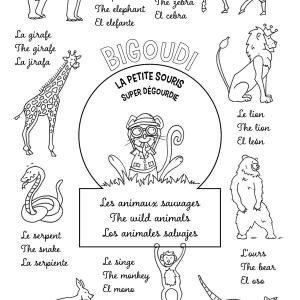 The elephant
El elefante
The zebra
El cebra
La girafe
The girafe
La jirafa
BIGOUDI
LA PETITE SOURIS
SUPER DÉGOURDIE
Le lion
The lion
El león
Les animaux sauvages
The wild animals
Los animales salvajes
Le serpent
The snake
La serpiente
Le singe
The monkey
El mono
L'ours
The bear
El oso